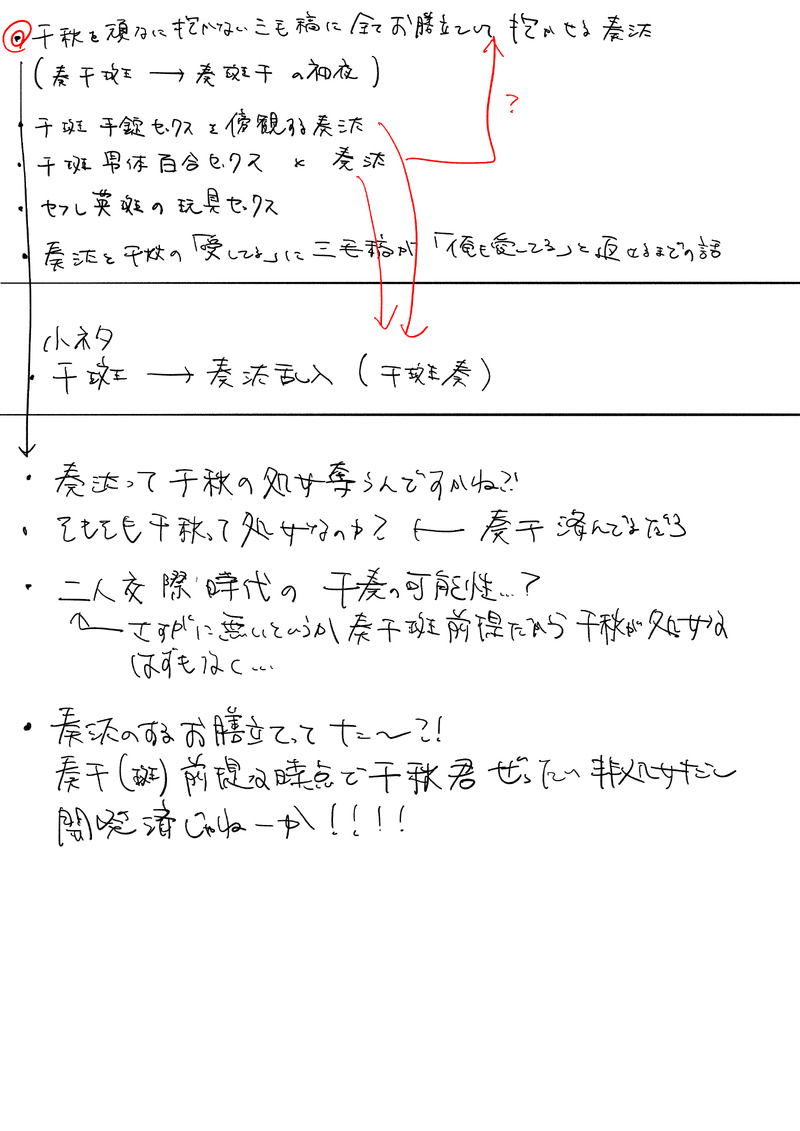 千秋を頑なに抱かない三毛縞に全てお膳立てして抱かせる奏汰
(奏千斑 → 奏斑千の初夜)
?
・千斑 手錠セックスを傍観する奏汰
・千斑 男体百合セックス × 奏汰
・セフレ英斑の玩具セックス
・奏汰と千秋の「愛してる」に三毛縞が「俺も愛してる」と返せるまでの話
小ネタ
・千斑 → 奏汰乱入 (千斑奏)
・奏汰って千秋の処女奪うんですかね?
・そもそも千秋って処女なのか? ← 奏千済んでるだろ
・二人交際時代の千奏の可能性…?
さすがに無いというか奏千斑前提だから千秋が処女な
はずもなく…
・奏汰のするお膳立てってなに〜?!
奏千(斑)前提な時点で千秋君ぜったい非処女だし
開発済じゃねーか!!!!